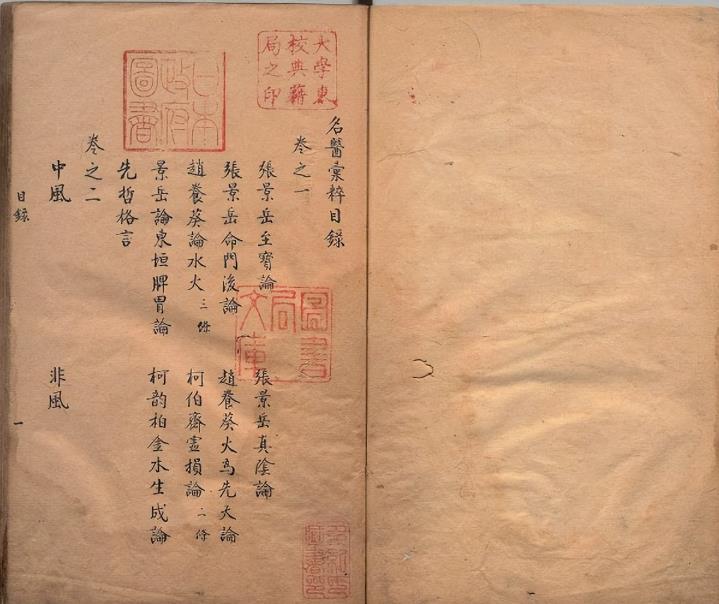 大學東
校典籍
局之印
日本
政府
圖書
名醫彙粹目録
卷之一
張景岳至寶論 張景岳真陰論
張景岳命門後論 趙養葵火為先天論
趙養葵論水火 三條 柯伯齋虛損論 二條
景岳論東垣脾胃論 柯韵柏金水生成論
先哲格言
卷之二
中風 非風
目録 一
圖書
局
文庫